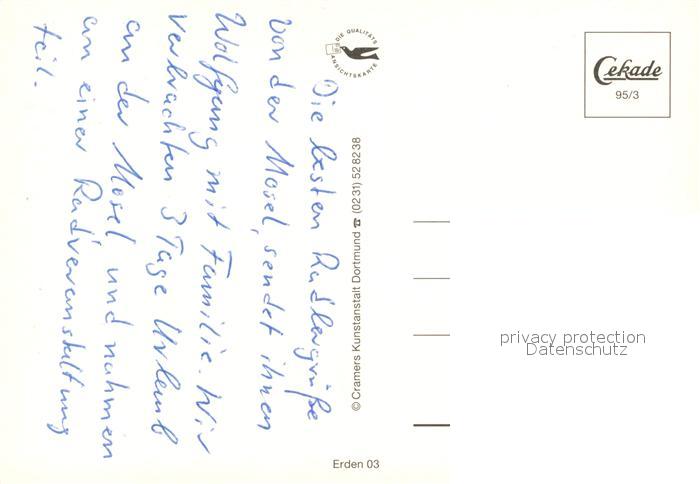 Die besten Radlergrüße
von der Mosel, sendet ihnen
Wolfgang mit Familie. Wir
verbrachten 3 Tage Urlaub
an der Mosel und nahmen
an einer Radveranstaltung
teil.
DIE QUALITÄTS
ANSICHTSKARTE
© Cramers Kunstanstalt Dortmund ☎ (02 31) 52 82 38
Erden 03
Cekade
95/3
privacy protection
Datenschutz